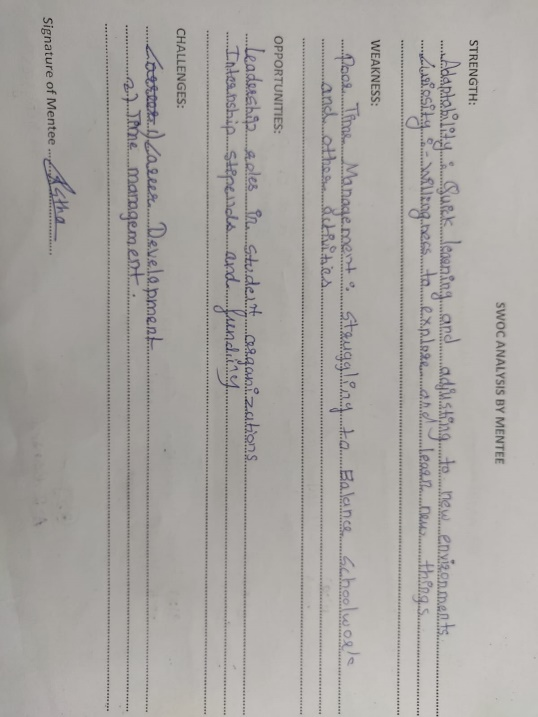 SWOC ANALYSIS BY MENTEE
STRENGTH:
Adaptability: Quick learning and adjusting to new environments
Curiosity:- willingness to explore and learn new things
WEAKNESS:
Poor Time Management: Struggling to Balance Schoolwork
and other activities
OPPORTUNITIES:
Leadership roles in student organizations
Internship stipends and funding
CHALLENGES:
1) Career Development
2) Time management.
Signature of Mentee Astha